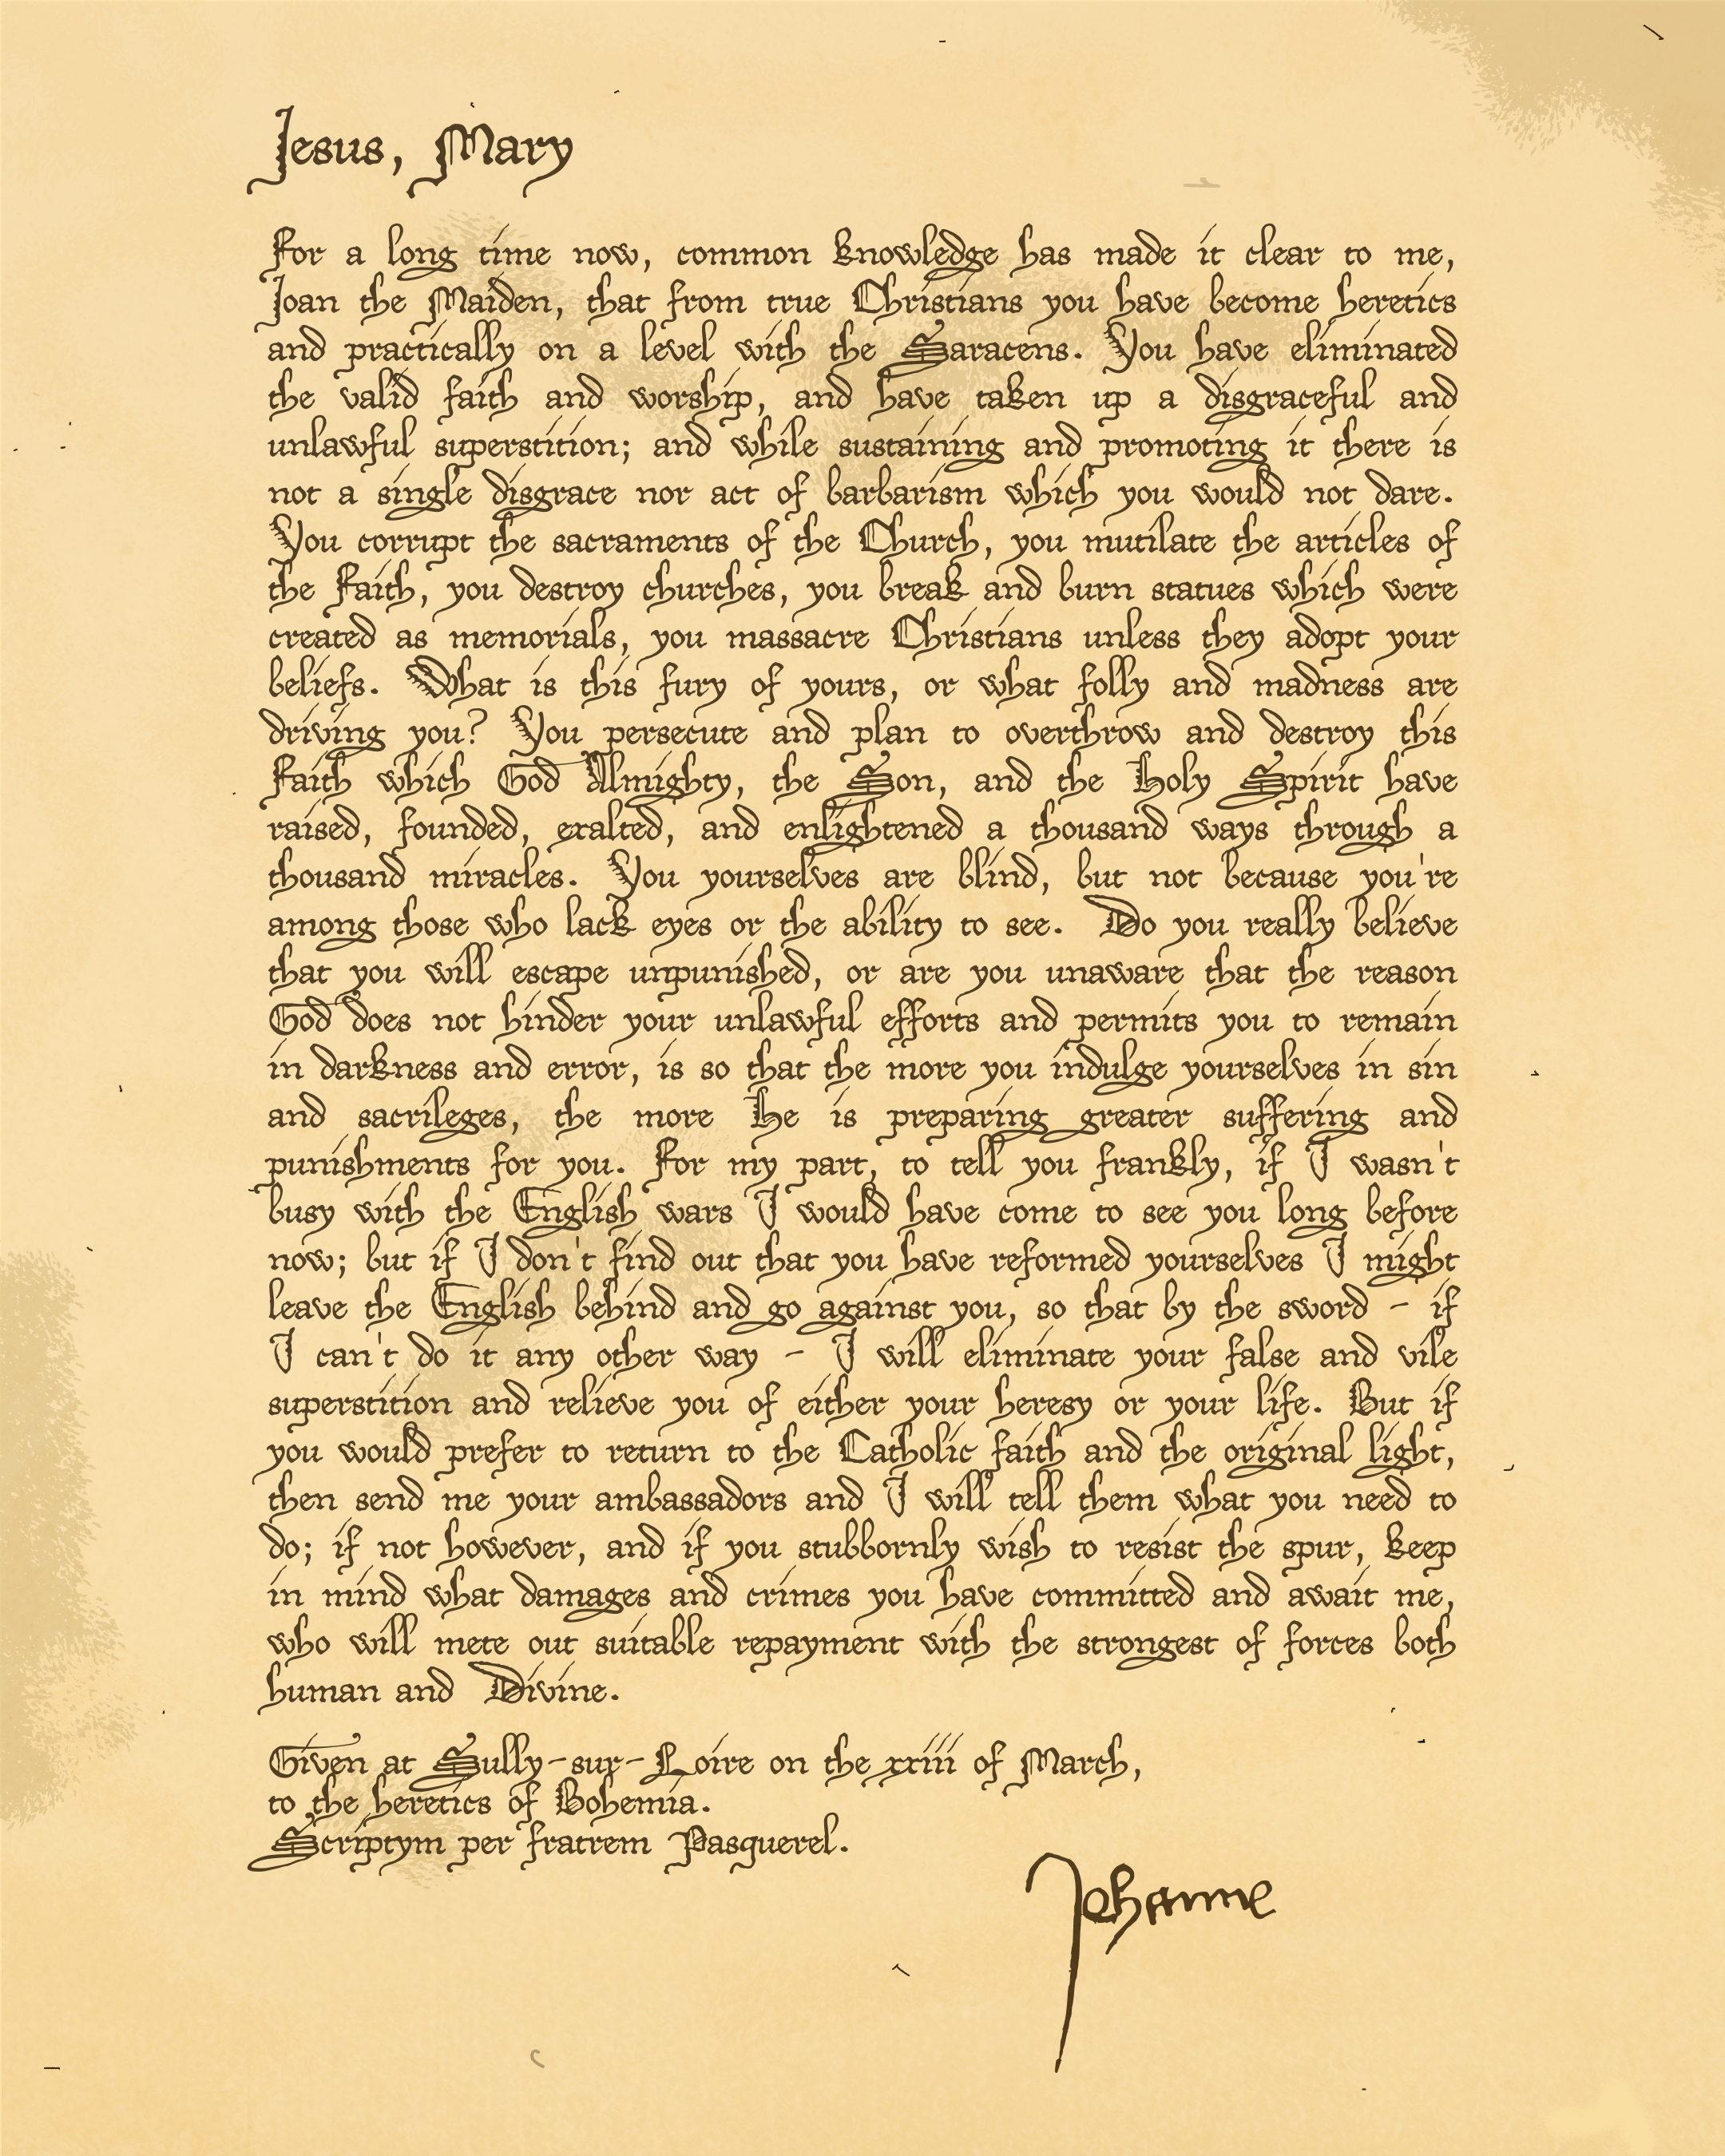 Jesus, Mary
For a long time now, common knowledge has made it clear to me,
Joan the Maiden, that from true Christians you have become heretics
and practically on a level with the Saracens. You have eliminated
the valid faith and worship, and have taken up a disgraceful and
unlawful superstition; and while sustaining and promoting it there is
not a single disgrace nor act of barbarism which you would not dare.
You corrupt the sacraments of the Church, you mutilate the articles of
the Faith, you destroy churches, you break and burn statues which were
created as memorials, you massacre Christians unless they adopt your
beliefs. What is this fury of yours, or what folly and madness are
driving you? You persecute and plan to overthrow and destroy this
Faith which God Almighty, the Son, and the Holy Spirit have
raised, founded, exalted, and enlightened a thousand ways through a
thousand miracles. You yourselves are blind, but not because you're
among those who lack eyes or the ability to see. Do you really believe
that you will escape unpunished, or are you unaware that the reason
God does not hinder your unlawful efforts and permits you to remain
in darkness and error, is so that the more you indulge yourselves in sin
and sacrileges, the more He is preparing greater suffering and
punishments for you. For my part, to tell you frankly, if I wasn't
busy with the English wars I would have come to see you long before
now; but if I don't find out that you have reformed yourselves I might
leave the English behind and go against you, so that by the sword - if
I can't do it any other way - I will eliminate your false and vile
superstition and relieve you of either your heresy or your life. But if
you would prefer to return to the Catholic faith and the original light,
then send me your ambassadors and I will tell them what you need to
do; if not however, and if you stubbornly wish to resist the spur, keep
in mind what damages and crimes you have committed and await me,
who will mete out suitable repayment with the strongest of forces both
human and Divine.
Given at Sully-sur-Loire on the xxiii of March,
to the heretics of Bohemia.
Scriptym per fratrem Pasquerel.
Jehanne